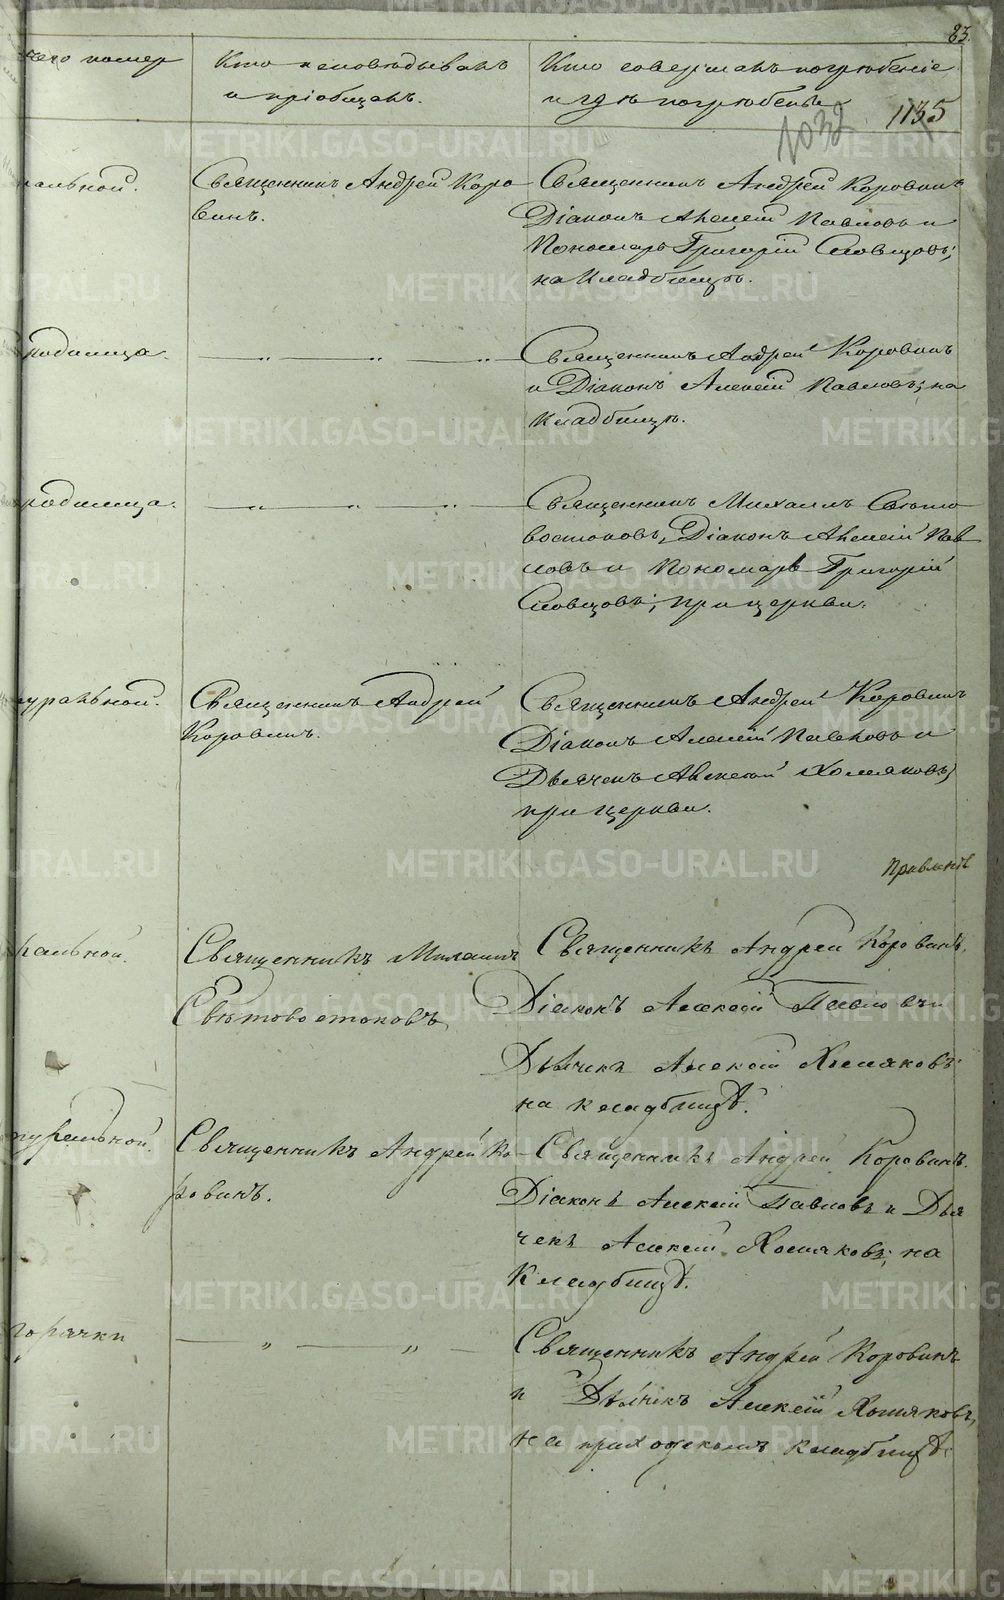 83.
чего померъ
Кто исповѣдывалъ
и пріобщалъ.
Кто совершалъ погребеніе
и гдѣ погребенъ
1032
1135
ральной.
Священникъ Андрей Коро
винъ.
Священникъ Андрей Коровинъ
Діаконъ Алексій Павловъ и
Пономарь Григорій Словцовъ;
на Кладбищѣ.
родимца.
Священникъ Андрей Коровинъ
и Діаконъ Алексій Павловъ; на
Кладбищѣ.
родимца.
Священникъ Михаилъ Свѣто
востоковъ, Діаконъ Алексій Пав
ловъ и Пономарь Григорій
Словцовъ; при церкви.
туральной.
Священникъ Андрей
Коровинъ.
Священникъ Андрей Коровинъ
Діаконъ Алексій Павловъ и
Дьячекъ Алексій Хомяковъ;
при церкви.
ральной.
Священникъ Михаилъ
Свѣтовостоковъ
Священникъ Андрей Коровинъ.
Діаконъ Алексій Павловъ и
Дьячекъ Алексій Хомяковъ:
на кладбищѣ.
туральной.
Священникъ Андрей Ко-
ровинъ.
Священникъ Андрей Коровинъ.
Діаконъ Алексій Павловъ и Дья
чекъ Алексій Хомяковъ; на
Кладбищѣ.
горячки
Священникъ Андрей Коровинъ
и Дьячекъ Алексій Хомяковъ,
на приходскомъ кладбищѣ.
METRIKI.GASO-URAL.RU